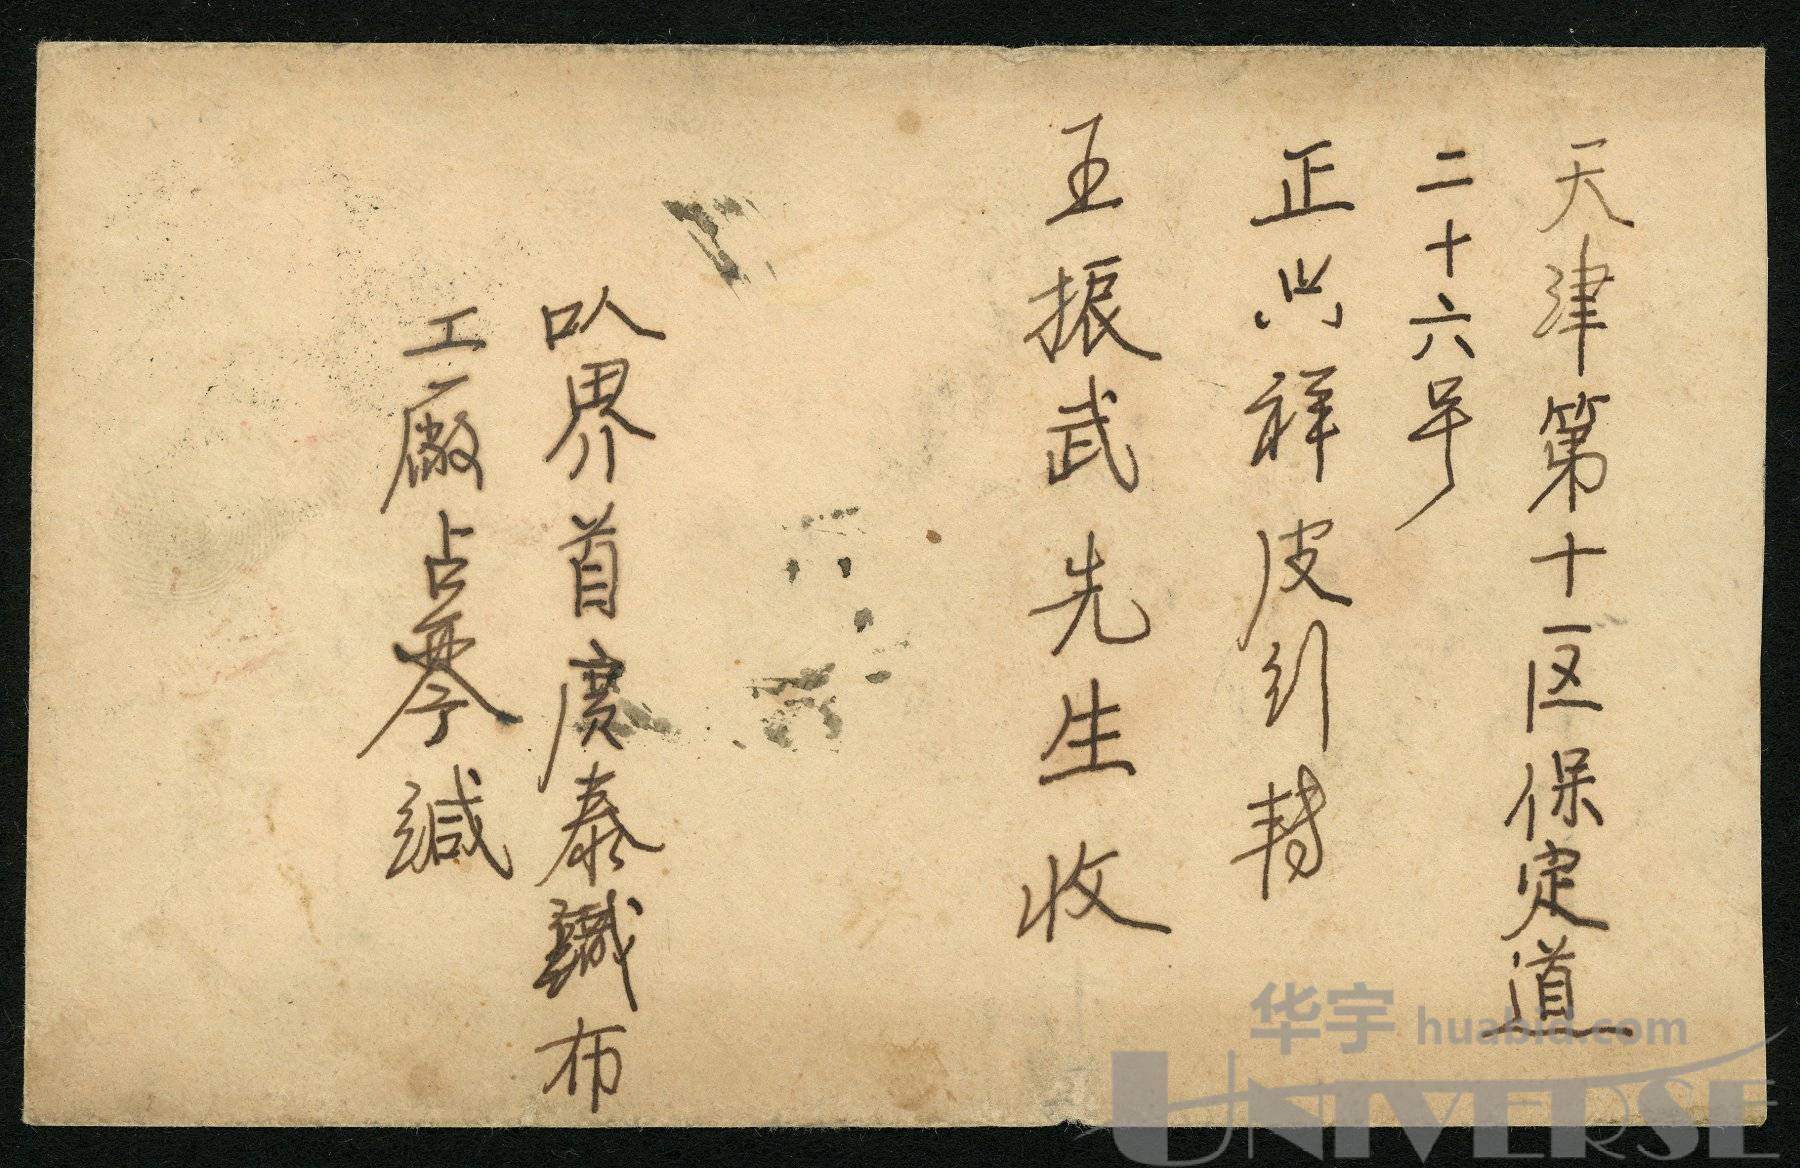 天津第十区保定道
二十六号
正兴祥皮列转
王振武先生收
叭界首庆泰織布
工廠占琴緘
华宇 huabid.com
UNIVERSE